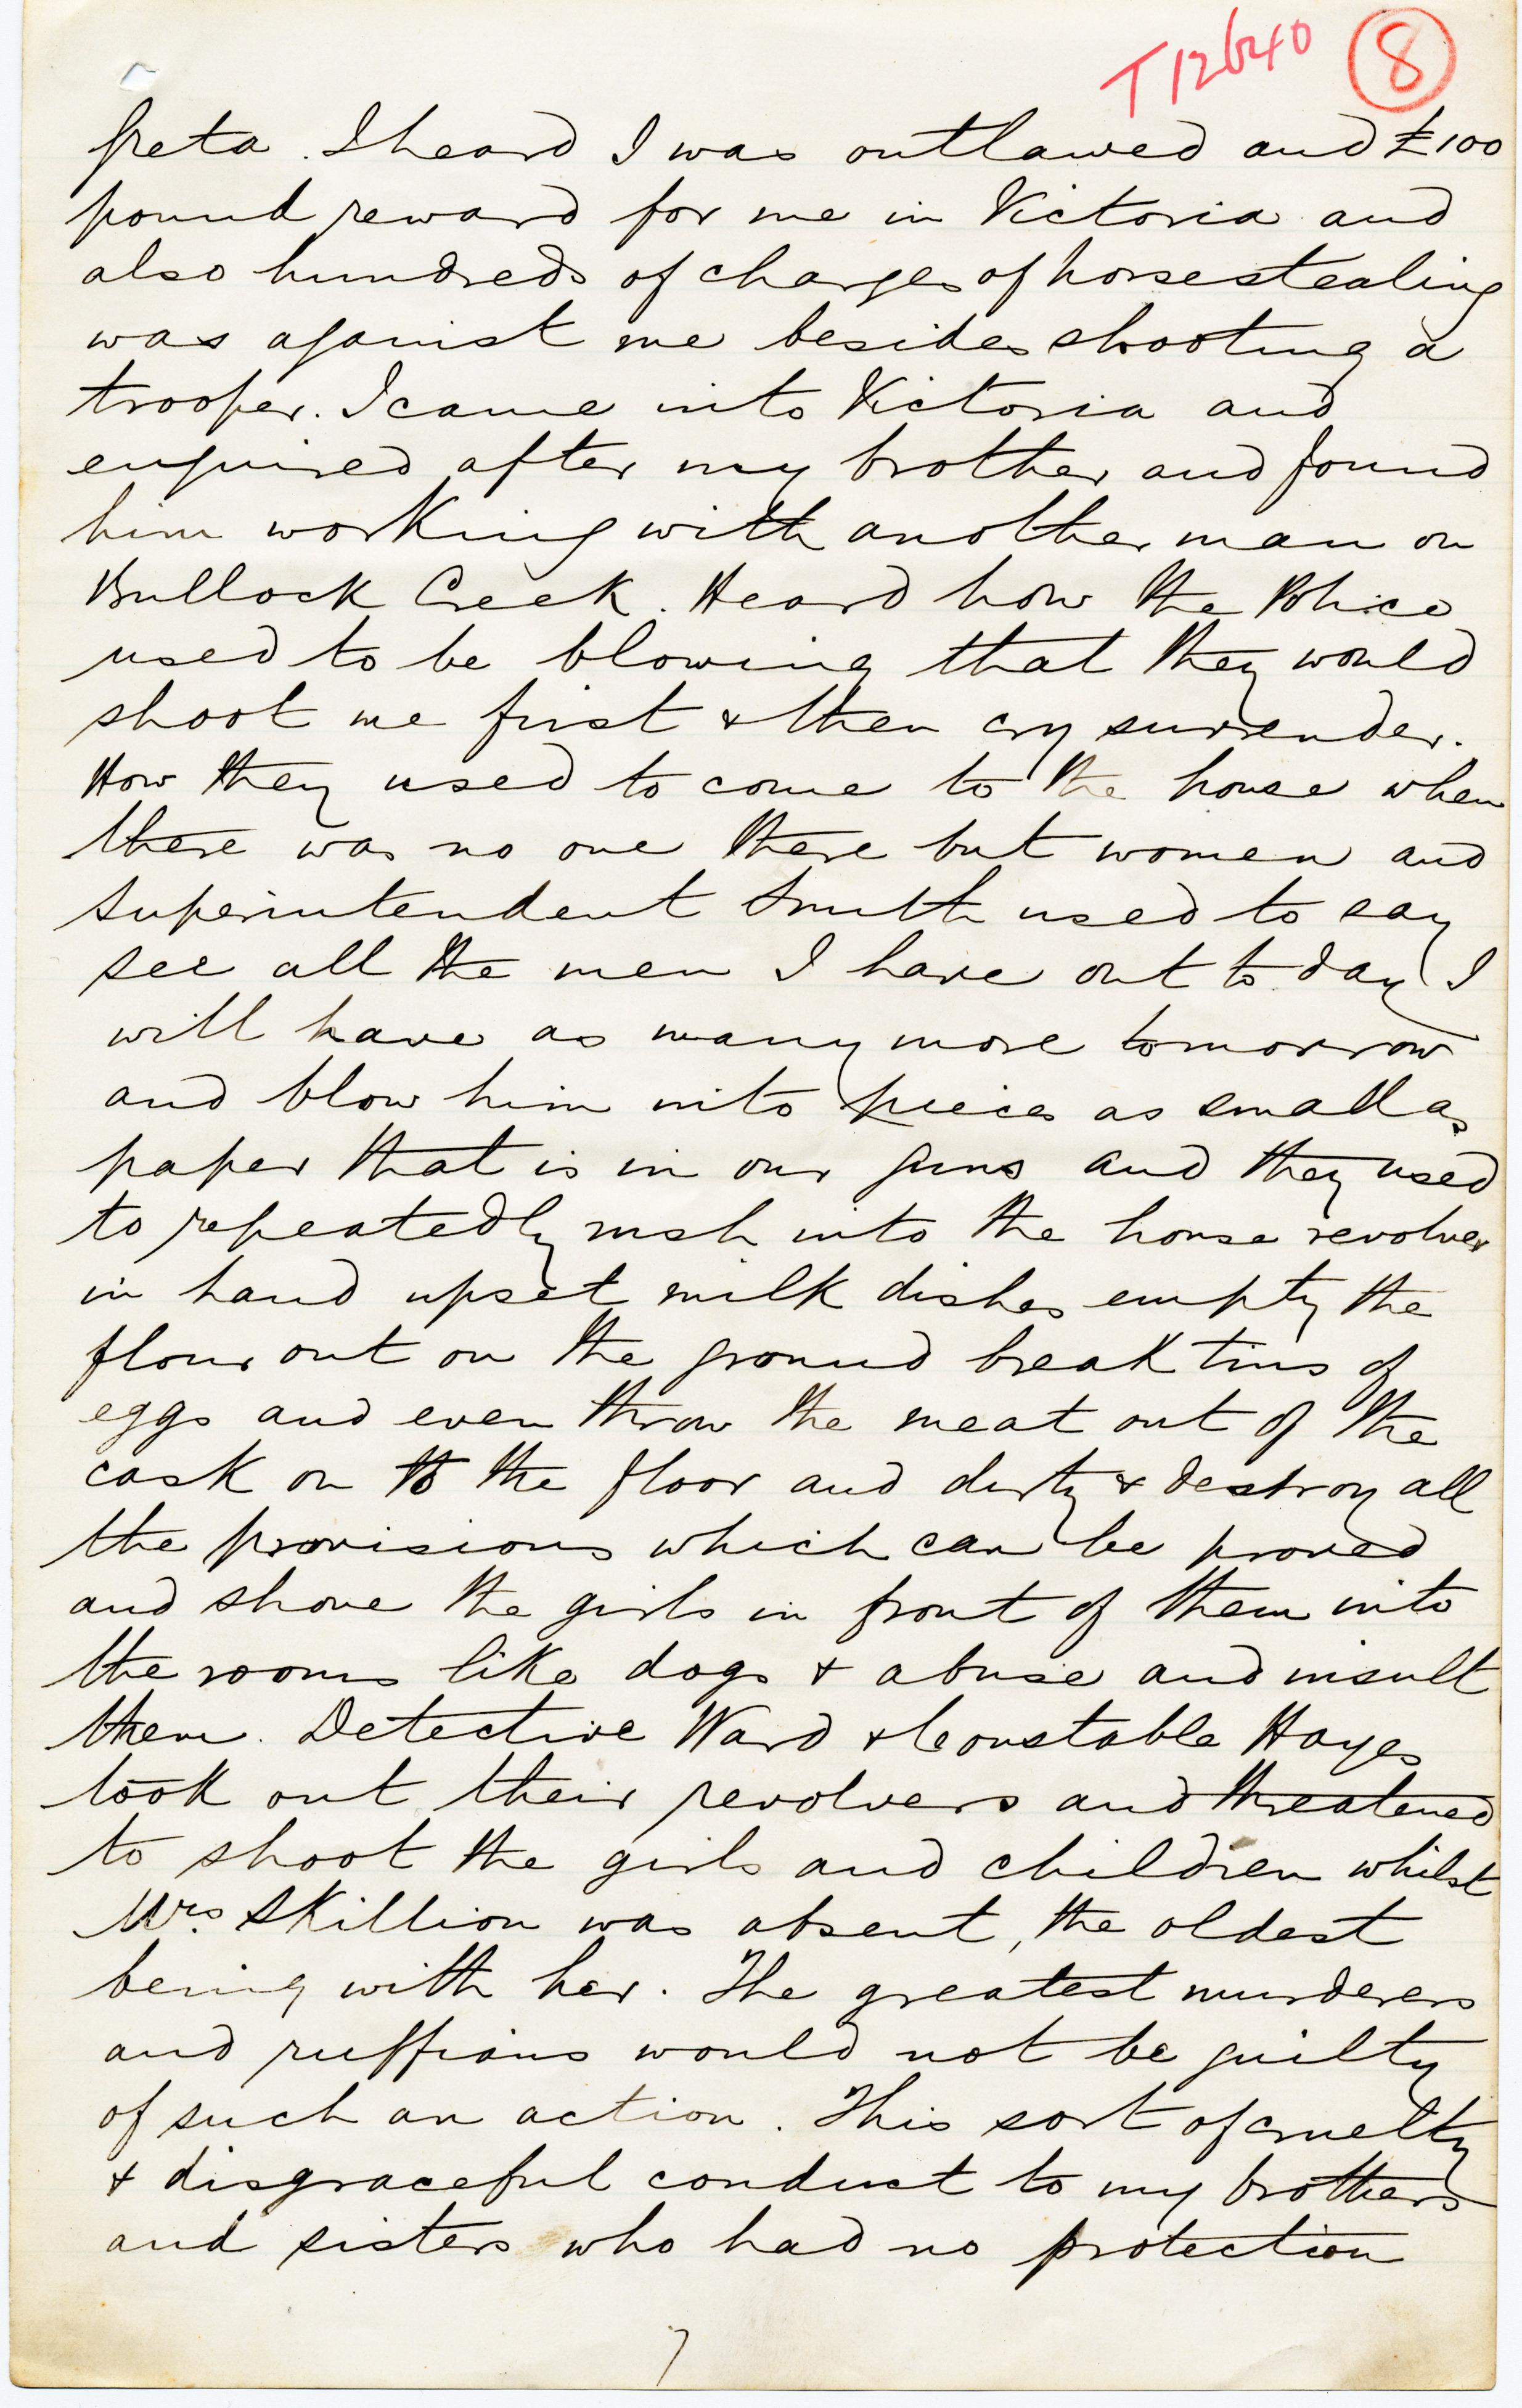 T12640 8
Greta. I heard I was outlawed and £100
pound reward for me in Victoria and
also hundreds of charges of horsestealing
was against me besides shooting a
trooper. I came into Victoria and
enquired after my brother and found
him working with another man on
Bullock Creek. Heard how the Police
used to be blowing that they would
shoot me first & then cry surrender.
How they used to come to the house when
there was no one there but women and
Superintendent Smith used to say
see all the men I have out to day I
will have as many more tomorrow
and blow him into pieces as small as
paper that is in our guns and they used
to repeatedly rush into the house revolver
in hand upset milk dishes empty the
flour out on the ground break tins of
eggs and even throw the meat out of the
cask on to the floor and dirty & destroy all
the provisions which can be proved
and shove the girls in front of them into
the rooms like dogs & abuse and insult
them. Detective Ward & Constable Hayes
took out their revolvers and threatened
to shoot the girls and children whilst
Mrs. Skillion was absent, the oldest
being with her. The greatest murderers
and ruffians would not be guilty
of such an action. This sort of cruelty
& disgraceful conduct to my brothers
and sisters who had no protection
7